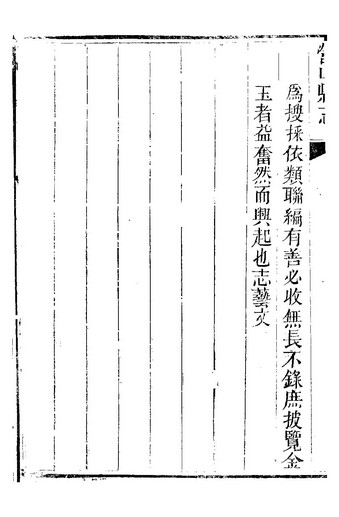 營山縣志
爲搜採依類聯編有善必收無長不錄庶披覽金
玉者益奮然而興起也志藝文